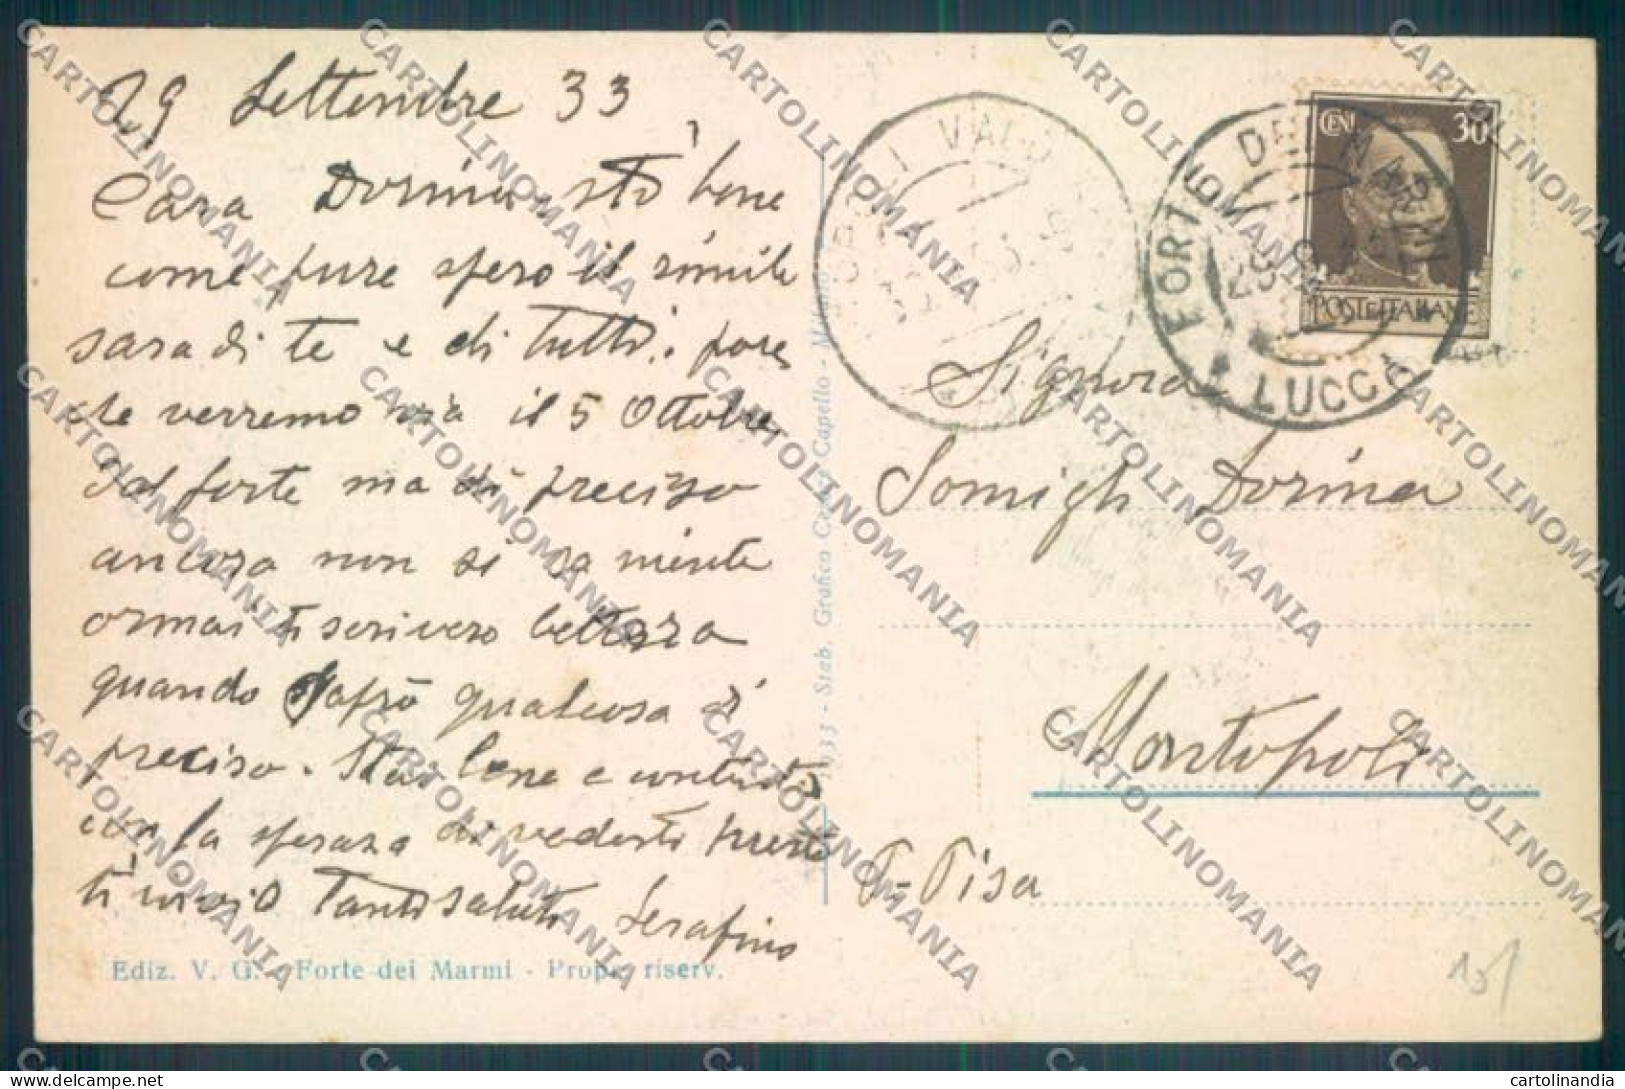 29 Settembre 33
Cara Dorina, sto bene
come pure spero il simile
sara di te e di tutti. pare
che verremo via il 5 Ottobre
dal forte ma di preciso
ancora non si sa niente
ormai ti scrivero lettera
quando saprò qualcosa di
preciso. Stai bene e contenta
con la speraza di vederti presto
ti invio Tanti saluti Serafino
Ediz. V. G. - Forte dei Marmi - Propr. riserv.
1933 - Stab. Grafico Cesare Capello - Milano
OPOLI VALD
FORTE DEI MARMI
LUCCA
CENT 30
POSTE ITALIANE
Signora
Somigli Dorina
Montopoli
P. Pisa
CARTOLINOMANIA
cartolinandia